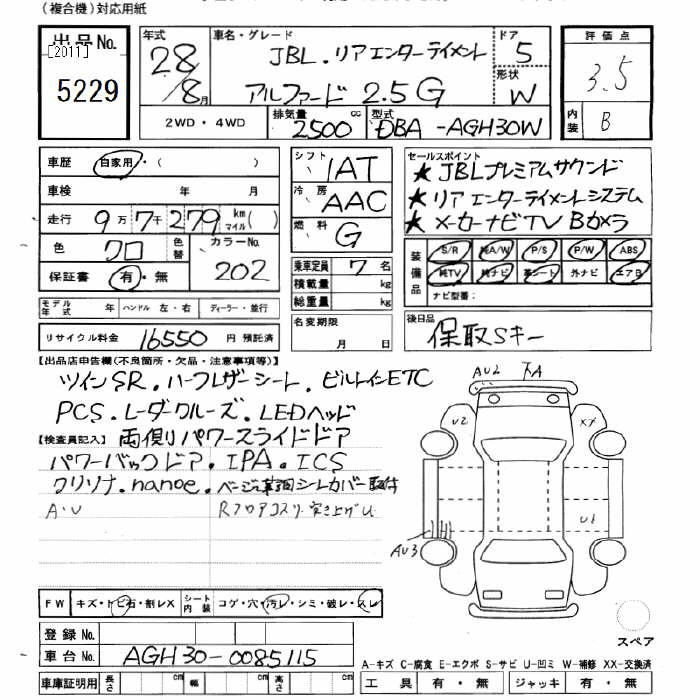 (複合機)対応用紙
出品No.
[2011]
5229
年式
28/8月
車名・グレード
JBL.リアエンターテイメント
アルファード 2.5G
ドア
5
形状
W
評価点
3.5
内装
B
2WD・4WD
排気量
2500 cc
型式
DBA-AGH30W
車歴 自家用・( )
車検 年 月
走行 9万7千279 km マイル( )
色 クロ 色替 カラーNo. 202
保証書 有・無
シフト IAT
冷房 AAC
燃料 G
乗車定員 7名
積載量 kg
総重量 kg
名変期限 月 日
セールスポイント
★JBLプレミアムサウンド
★リアエンターテイメントシステム
★メーカーナビTV Bカメラ
装備品 S/R 純A/W P/S P/W ABS
純TV 純ナビ 革シート 外ナビ エアB
ナビ型番:
モデル年式 年 ハンドル 左・右 ディーラー・並行
リサイクル料金 16550 円 預託済
後日品
保取Sキー
【出品店申告欄(不良箇所・欠品・注意事項等)】
ツインSR.ハーフレザーシート.ビルトインETC
PCS.レーダクルーズ.LEDヘッド
【検査員記入】両側パワースライドドア
パワーバックドア.IPA.ICS
クリソナ.nanoe.ベージュ革調シートカバー取付
A・U
Rフロアコスリ・突き上げU
AU2 下A
U2 X7
AU3 U1
FW キズ・トビ石・割レX シート内装 コゲ・穴・汚レ・シミ・破レ・スレ
登録No.
車台No. AGH30-0085115
車庫証明用 長さ cm 幅 cm 高さ cm
スペア
A-キズ C-腐食 E-エクボ S-サビ U-凹ミ W-補修 XX-交換済
工具 有・無 ジャッキ 有・無